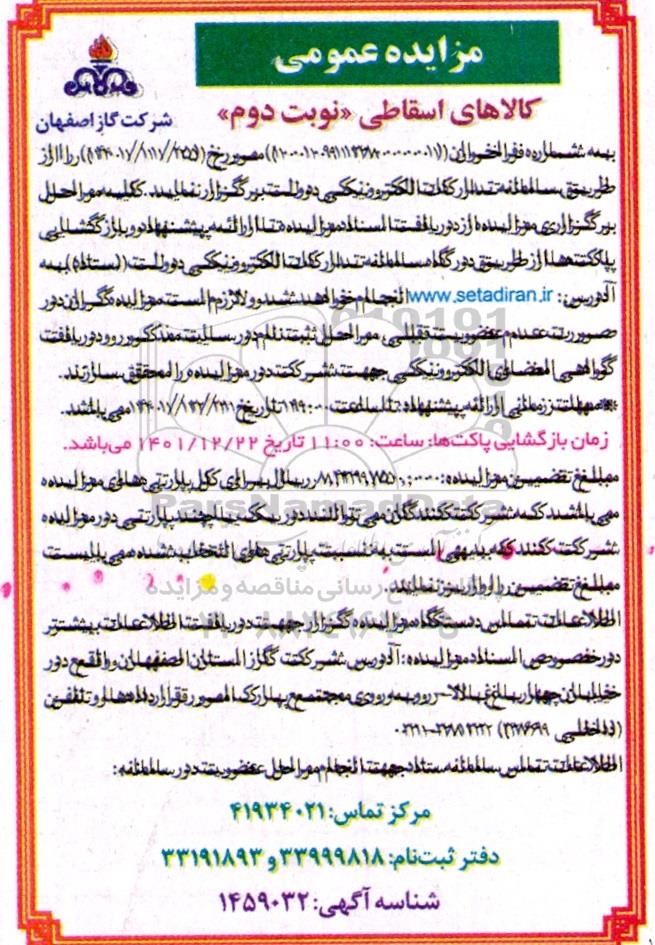 مزایده عمومی
کالاهای اسقاطی «نوبت دوم»
شرکت گاز اصفهان
به شماره فراخوان مورخ را از
طریق سامانه تدارکات الکترونیکی دولت برگزار نماید. کلیه مراحل
برگزاری مزایده از دریافت اسناد مزایده تا ارائه پیشنهاد و بازگشایی
پاکت‌ها از طریق درگاه سامانه تدارکات الکترونیکی دولت (ستاد) به
آدرس: www.setadiran.ir انجام خواهد شد و لازم است مزایده‌گران در
صورت عدم عضویت قبلی، مراحل ثبت نام در سایت مذکور و دریافت
گواهی امضای الکترونیکی جهت شرکت در مزایده را محقق سازند.
*مهلت زمانی ارائه پیشنهاد: تا ساعت تاریخ می‌باشد.
زمان بازگشایی پاکت‌ها: ساعت: ۱۱:۰۰ تاریخ ۱۴۰۱/۱۲/۲۲ می‌باشد.
مبلغ تضمین مزایده: ریال برای کل پارتی‌های مزایده
می‌باشد که شرکت‌کنندگان می‌توانند در یک یا چند پارتی در مزایده
شرکت کنند که بدیهی است به نسبت پارتی‌های انتخاب شده می‌بایست
مبلغ تضمین را واریز نمایند.
اطلاعات تماس دستگاه مزایده‌گزار جهت دریافت اطلاعات بیشتر
در خصوص اسناد مزایده: آدرس شرکت گاز استان اصفهان واقع در
خیابان چهارباغ بالا - روبه‌روی مجتمع پارک قرارداده‌ها و تلفن
(داخلی
اطلاعات تماس سامانه ستاد جهت انجام مراحل عضویت در سامانه:
مرکز تماس: ۰۲۱-۴۱۹۳۴
دفتر ثبت‌نام: ۳۳۹۹۹۸۱۸ و ۳۳۱۹۱۸۹۳
شناسه آگهی: ۱۴۵۹۰۳۲
ParsNamadData